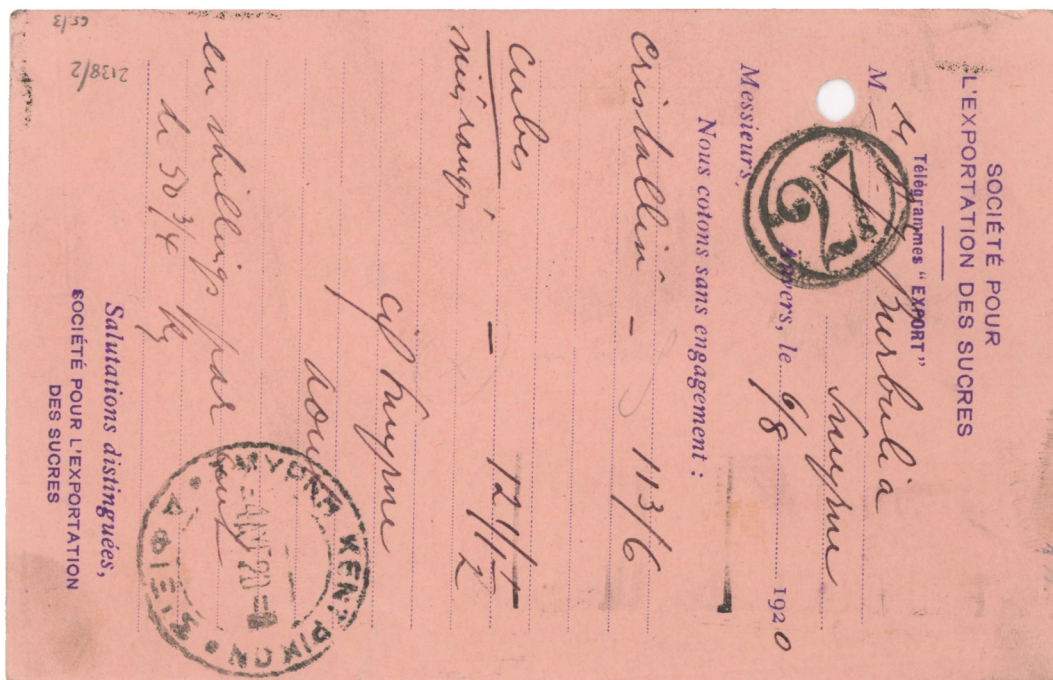 SOCIÉTÉ POUR
L'EXPORTATION DES SUCRES
Télégrammes "EXPORT"
M Burbulia
Smyrne
Anvers, le 6/8 1920
Messieurs,
Nous cotons sans engagement :
Cristallisé - 113/6
Cubes - 121/
mi, rangé
cif Smyrne
en shillings par
de 50 3/4 kg
Salutations distinguées,
SOCIÉTÉ POUR L'EXPORTATION
DES SUCRES
ΣΜΥΡΝΗ ΚΕΝΤΡΙΚΟΝ
20
2138/2
65/3